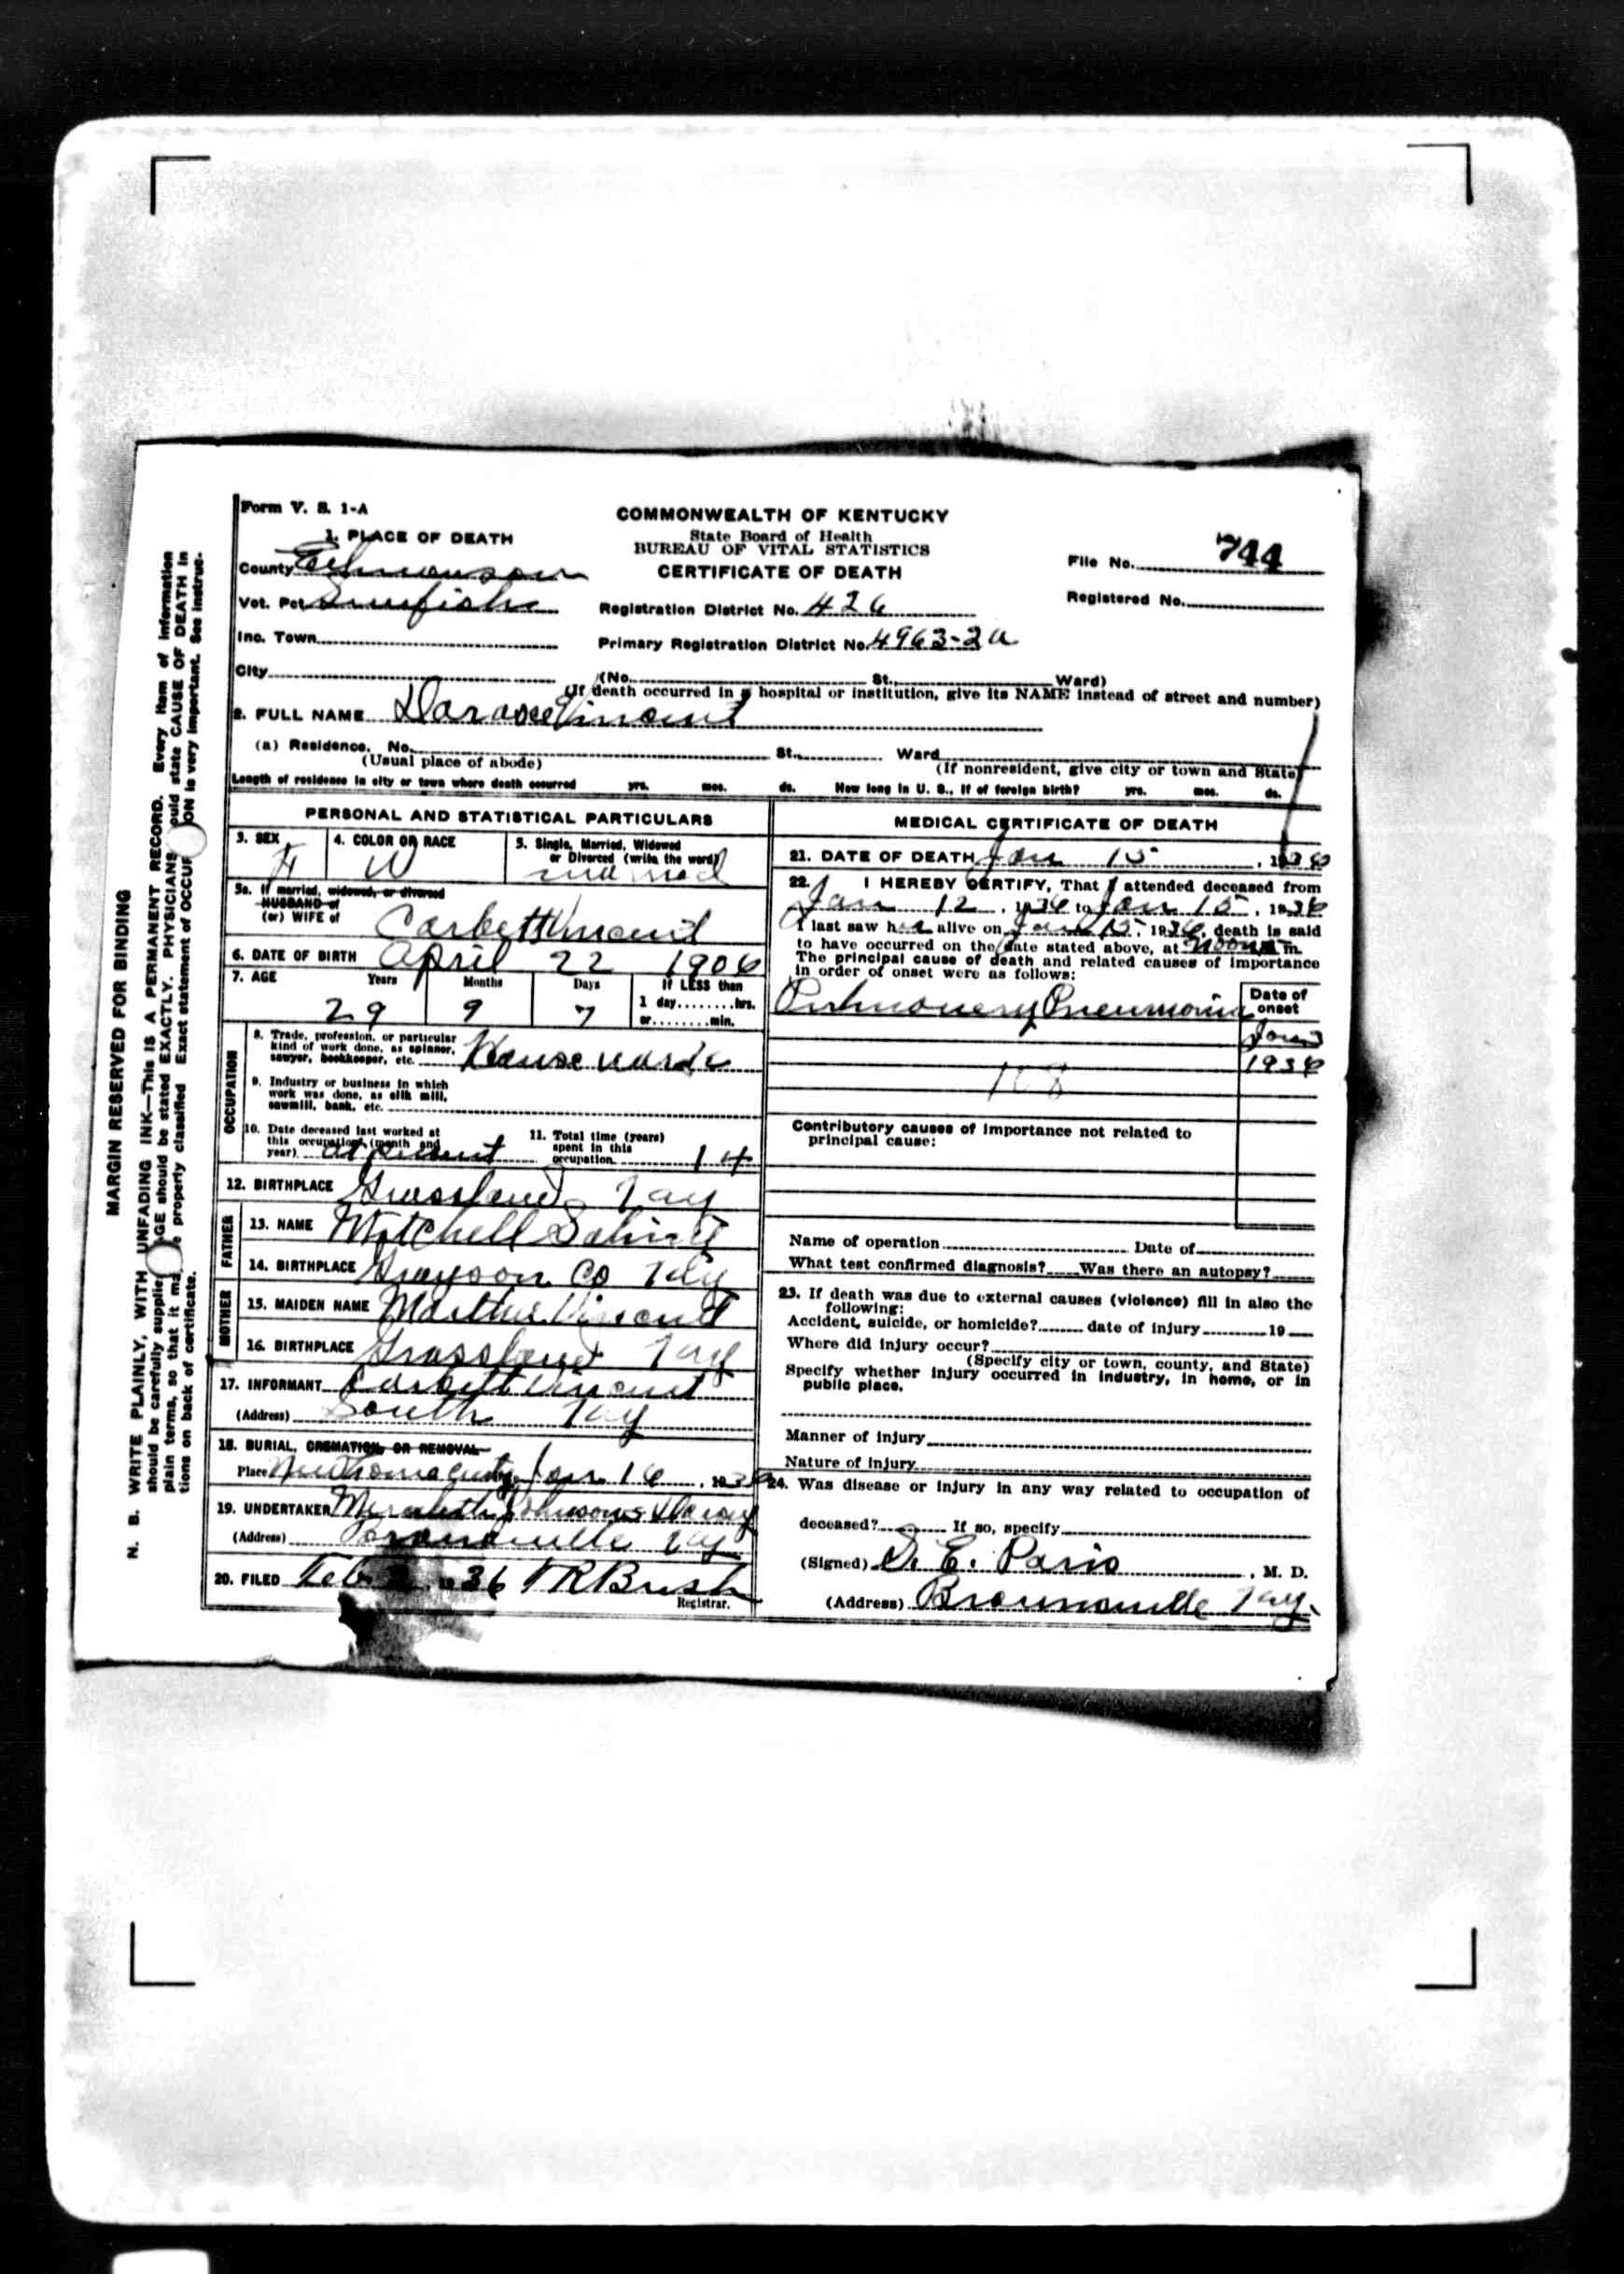 Form V. S. 1-A
COMMONWEALTH OF KENTUCKY
State Board of Health
BUREAU OF VITAL STATISTICS
CERTIFICATE OF DEATH
File No. 744
Registered No.
1. PLACE OF DEATH
County Edmonson
Vot. Pct Sunfish
Registration District No. 426
Inc. Town
Primary Registration District No. 4963-2a
City (No. St. Ward)
(If death occurred in a hospital or institution, give its NAME instead of street and number)
2. FULL NAME Vincent
(a) Residence. No. St. Ward
(Usual place of abode) (If nonresident, give city or town and State)
Length of residence in city or town where death occurred yrs. mos. ds. How long in U. S., if of foreign birth? yrs. mos. ds.
PERSONAL AND STATISTICAL PARTICULARS
3. SEX F
4. COLOR OR RACE W
5. Single, Married, Widowed
or Divorced (write the word)
married
5a. If married, widowed, or divorced
HUSBAND of
(or) WIFE of Corbett Vincent
6. DATE OF BIRTH April 22 1906
7. AGE Years Months Days If LESS than
1 day........hrs.
or........min.
29 9 7
OCCUPATION
8. Trade, profession, or particular
kind of work done, as spinner,
sawyer, bookkeeper, etc. House
9. Industry or business in which
work was done, as silk mill,
sawmill, bank, etc.
10. Date deceased last worked at
this occupation (month and
year) at present
11. Total time (years)
spent in this
occupation 14
12. BIRTHPLACE Grassland Ky
FATHER
13. NAME Mitchell
14. BIRTHPLACE Grayson Co Ky
MOTHER
15. MAIDEN NAME Martha Vincent
16. BIRTHPLACE Grassland Ky
17. INFORMANT Corbett Vincent
(Address) South Ky
18. BURIAL, CREMATION, OR REMOVAL
Place Jan 16, 1936
19. UNDERTAKER Johnson
(Address) Brownsville Ky
20. FILED Feb 36 Brush
Registrar.
MEDICAL CERTIFICATE OF DEATH
21. DATE OF DEATH Jan 15, 1936
22. I HEREBY CERTIFY, That I attended deceased from
Jan 12, 1936 to Jan 15, 1936
I last saw her alive on Jan 15, 1936, death is said
to have occurred on the date stated above, at noon m.
The principal cause of death and related causes of importance
in order of onset were as follows:
Pulmonery Pneumonia
Date of
onset
Jan
1936
108
Contributory causes of importance not related to
principal cause:
Name of operation Date of
What test confirmed diagnosis? Was there an autopsy?
23. If death was due to external causes (violence) fill in also the
following:
Accident, suicide, or homicide? date of injury 19
Where did injury occur?
(Specify city or town, county, and State)
Specify whether injury occurred in industry, in home, or in
public place.
Manner of injury
Nature of injury
24. Was disease or injury in any way related to occupation of
deceased? If so, specify
(Signed) , M. D.
(Address) Brownsville Ky.
MARGIN RESERVED FOR BINDING
N. B. WRITE PLAINLY, WITH UNFADING INK—THIS IS A PERMANENT RECORD. Every item of information
should be carefully supplied. AGE should be stated EXACTLY. PHYSICIANS should state CAUSE OF DEATH in
plain terms, so that it may be properly classified. Exact statement of OCCUPATION is very important. See instruc-
tions on back of certificate.